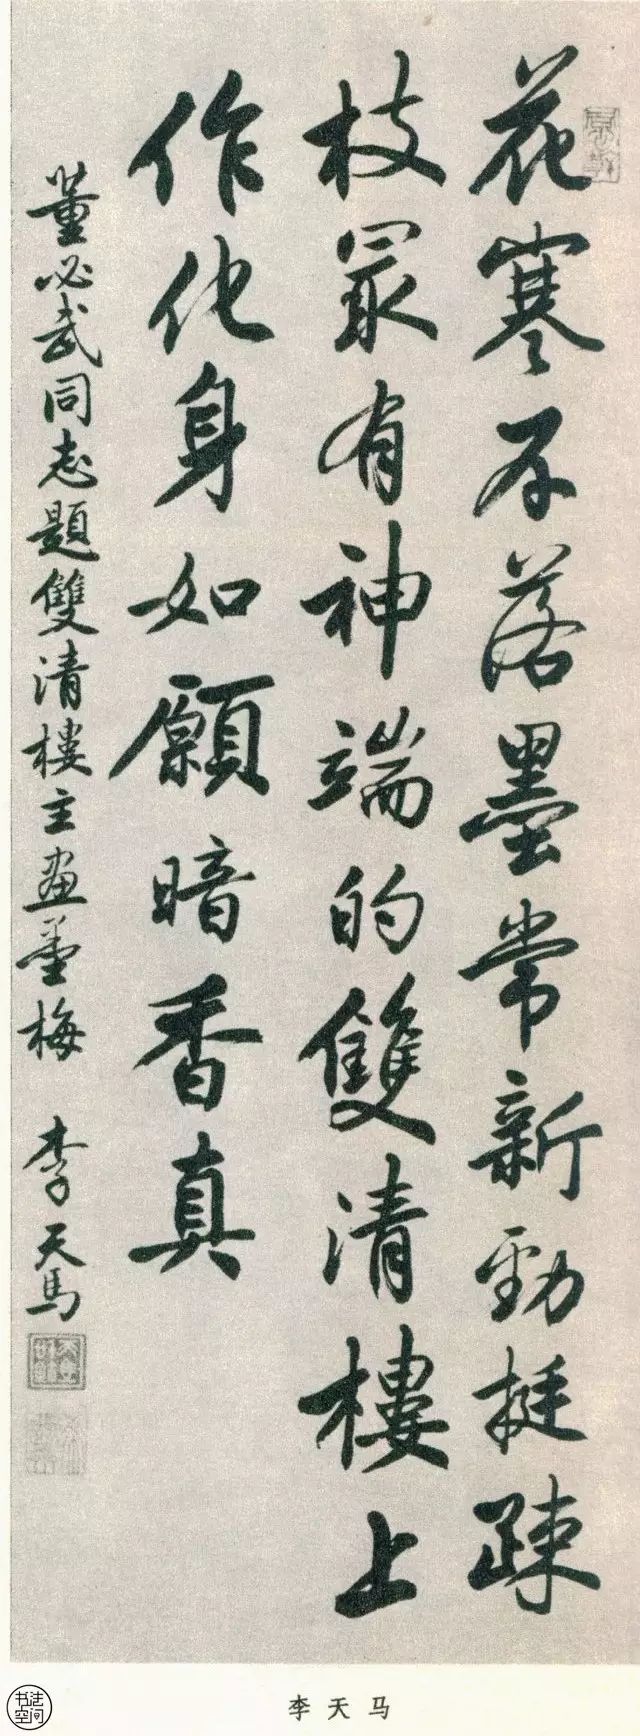 花寒不落墨常新勁挺疎
枝冣有神端的雙清樓上
作化身如願暗香真
董必武同志題雙清樓主畫墨梅 李天马
李天马
书法空间